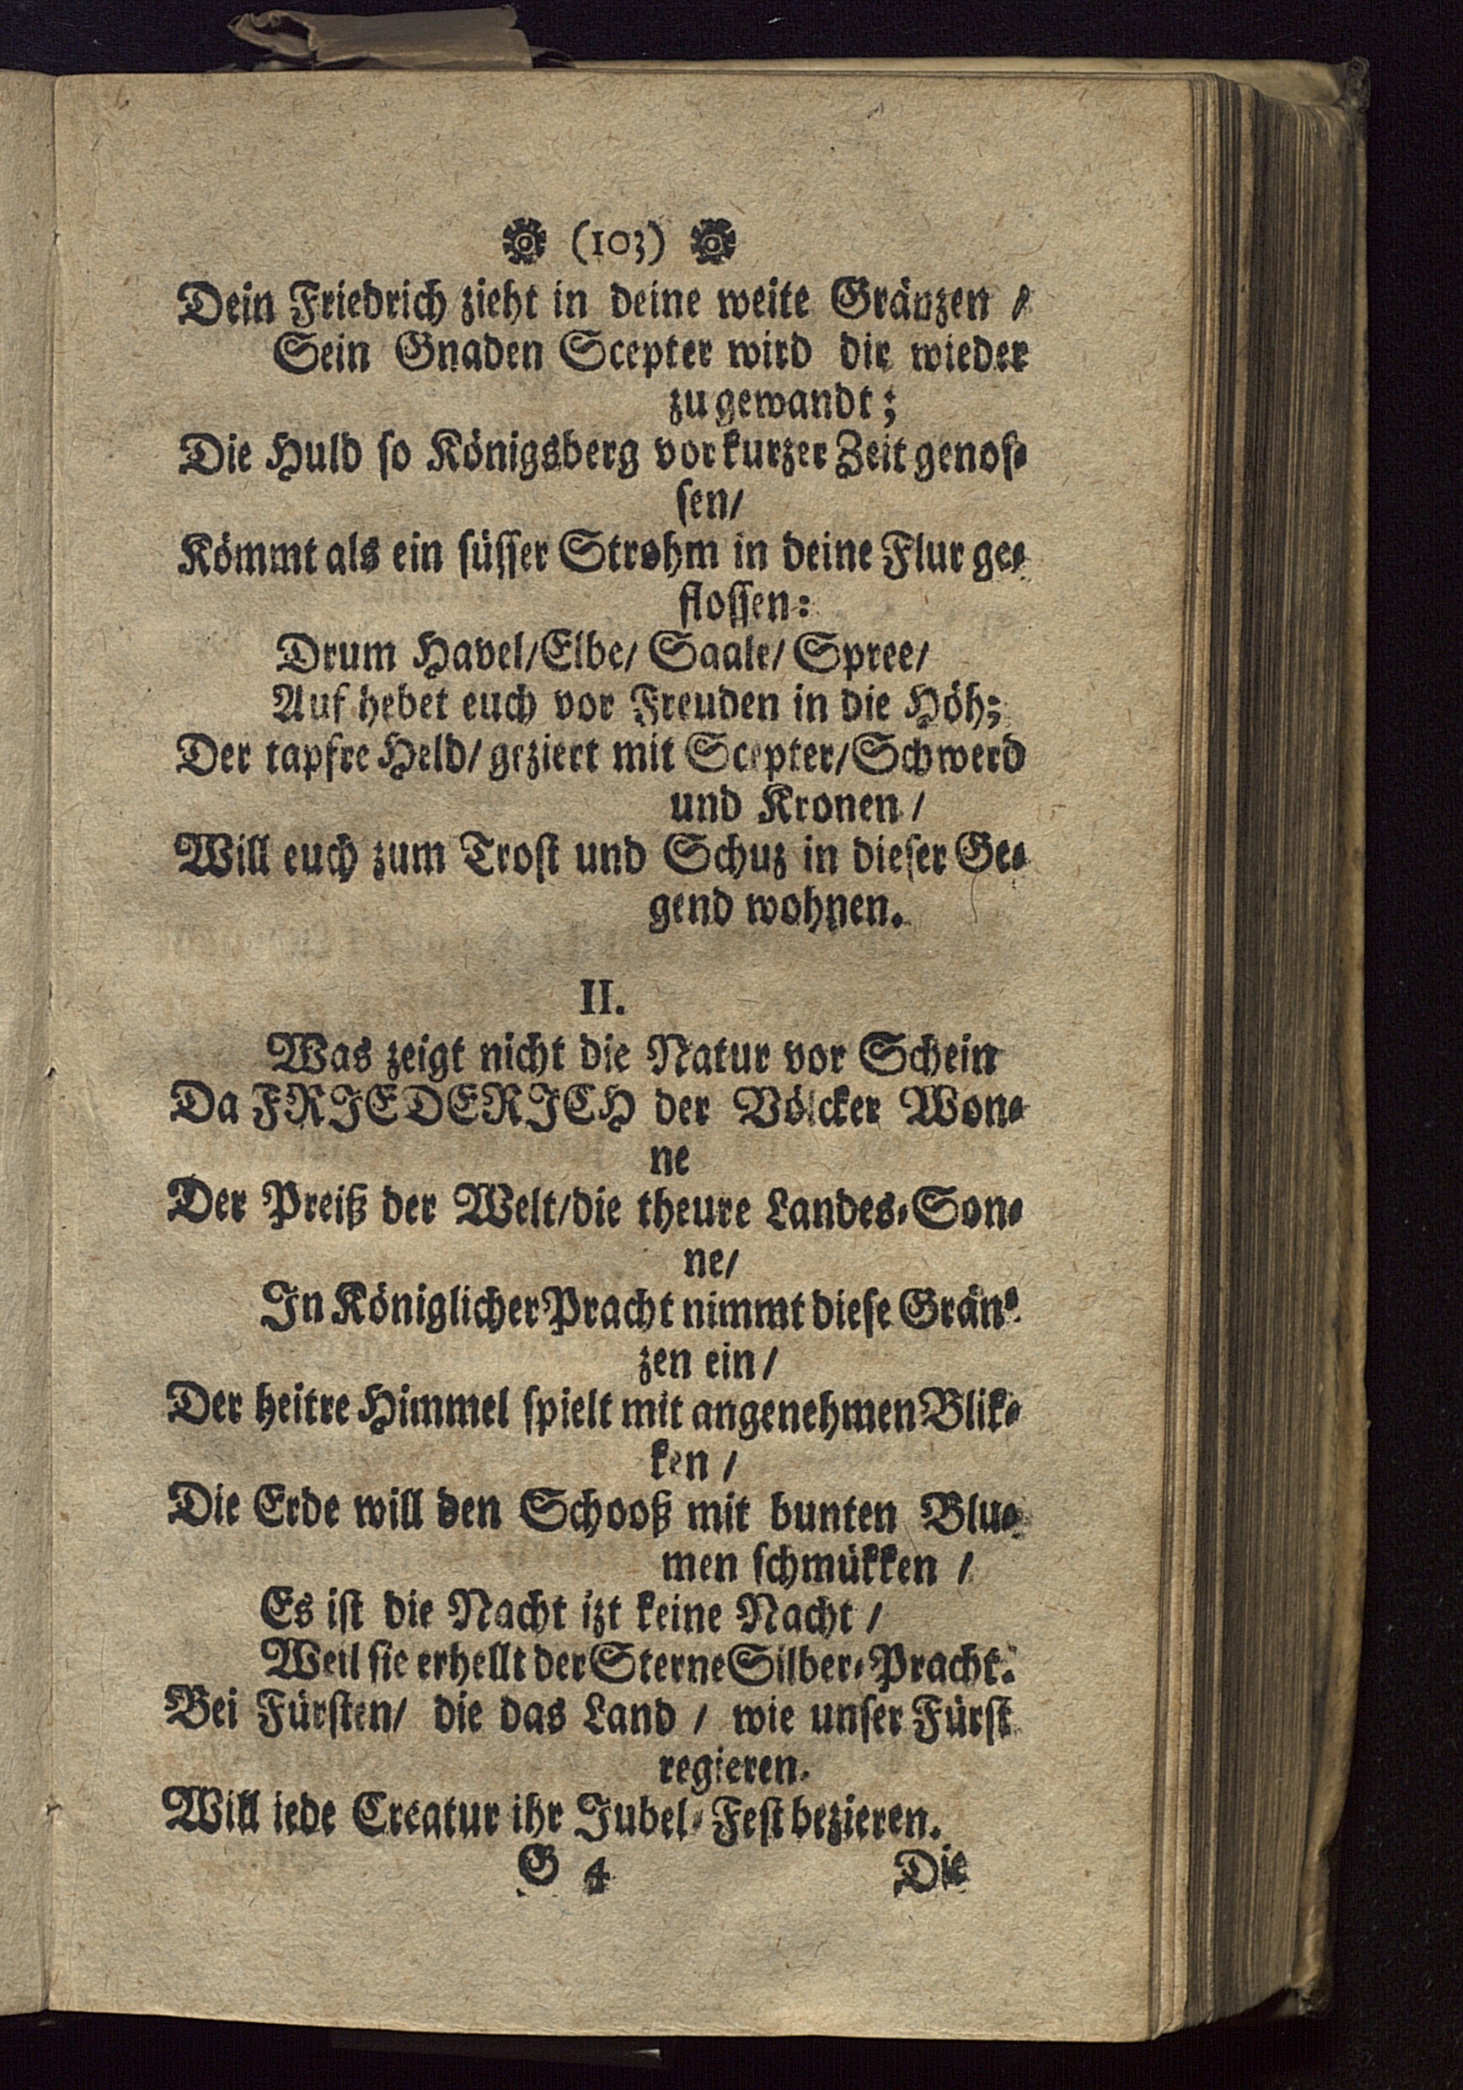 (103)
Dein Friedrich zieht in deine weite Gränzen /
Sein Gnaden Scepter wird dir wieder
zu gewandt;
Die Huld so Königsberg vor kurzer Zeit genos-
sen/
Kömmt als ein süsser Strohm in deine Flur ge-
flossen:
Drum Havel/Elbe/ Saale/ Spree/
Auf hebet euch vor Freuden in die Höh;
Der tapfre Held/ geziert mit Scepter/Schwerd
und Kronen /
Will euch zum Trost und Schuz in dieser Ge-
gend wohnen.
II.
Was zeigt nicht die Natur vor Schein
Da FRIEDERICH der Völcker Won-
ne
Der Preiß der Welt/die theure Landes-Son-
ne/
In Königlicher Pracht nimmt diese Grän-
zen ein/
Der heitre Himmel spielt mit angenehmen Blik-
ken /
Die Erde will den Schooß mit bunten Blu-
men schmükken /
Es ist die Nacht izt keine Nacht /
Weil sie erhellt der Sterne Silber-Pracht.
Bei Fürsten/ die das Land / wie unser Fürst
regieren.
Will iede Creatur ihr Jubel-Fest bezieren.
G 4 Die